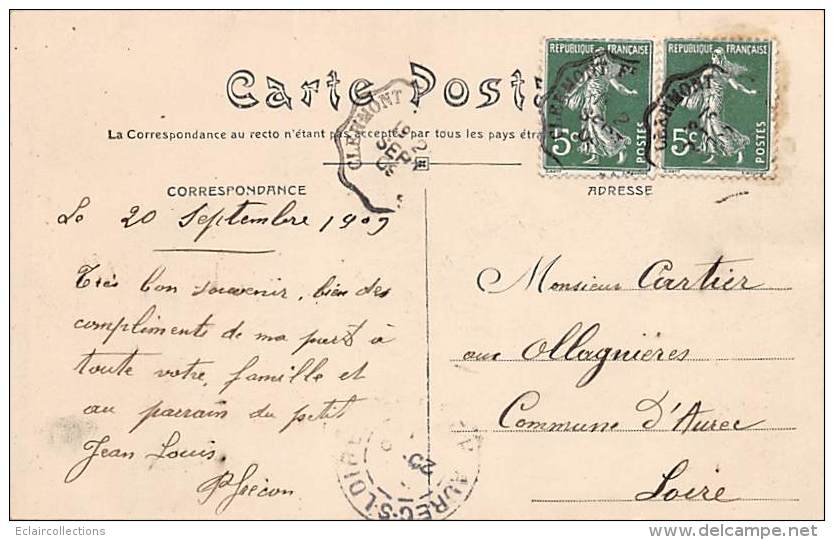 Carte Post
REPUBLIQUE FRANÇAISE
5c
POSTES
REPUBLIQUE FRANÇAISE
5c
POSTES
CLERMONT
CLERMONT
CLERMONT
La Correspondance au recto n'étant pas acceptée par tous les pays étra
CORRESPONDANCE
ADRESSE
Le 20 Septembre 1909
Très bon souvenir, bien des
compliments de ma part à
toute votre famille et
au parrain du petit
Jean Louis.
Monsieur Cartier
aux Ollagnières
Commune d'Aurec
Loire
AUREC-S-LOIRE
Eclaircollections
www.delcampe.net